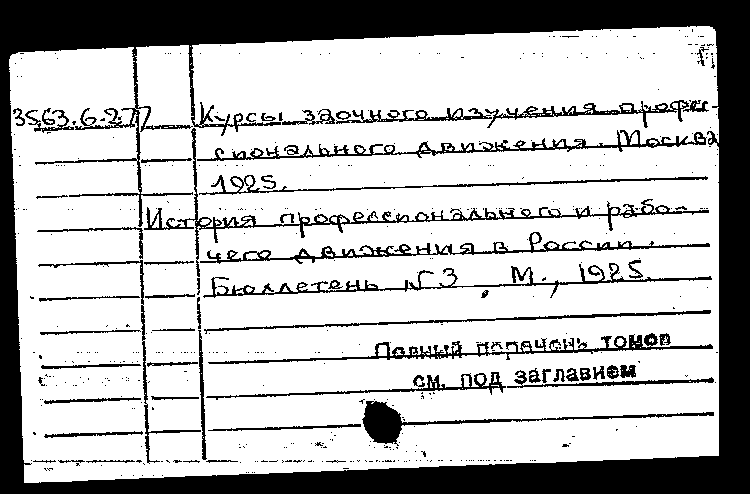 3563.6.277 Курсы заочного изучения профес-
сионального движения. Москва
1925.
История профессионального и рабо-
чего движения в России.
Бюллетень N 3. М., 1925.
Полный перечень томов
см. под заглавием